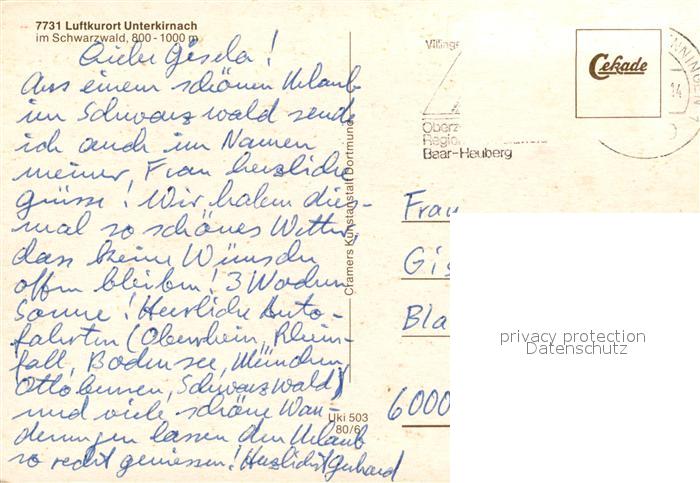 7731 Luftkurort Unterkirnach
im Schwarzwald, 800-1000 m
Liebe Gisela!
Aus einem schönen Urlaub
im Schwarzwald sende
ich auch im Namen
meiner Frau herzliche
Grüsse! Wir haben dies-
mal so schönes Wetter,
dass keine Wünsche
offen bleiben! 3 Wochen
Sonne! Herrliche Auto-
fahrten (Oberrhein, Rhein-
fall, Bodensee, München,
Ottobeuren, Schwarzwald)
und viele schöne Wan-
derungen lassen den Urlaub
so recht geniessen! Herzlichst Gerhard
Cramers Kunstanstalt Dortmund
Uki 503
80/6
Villinge
Oberz
Region
Baar-Heuberg
Cekade
14
Frau
Gis
Bla
6000
privacy protection
Datenschutz